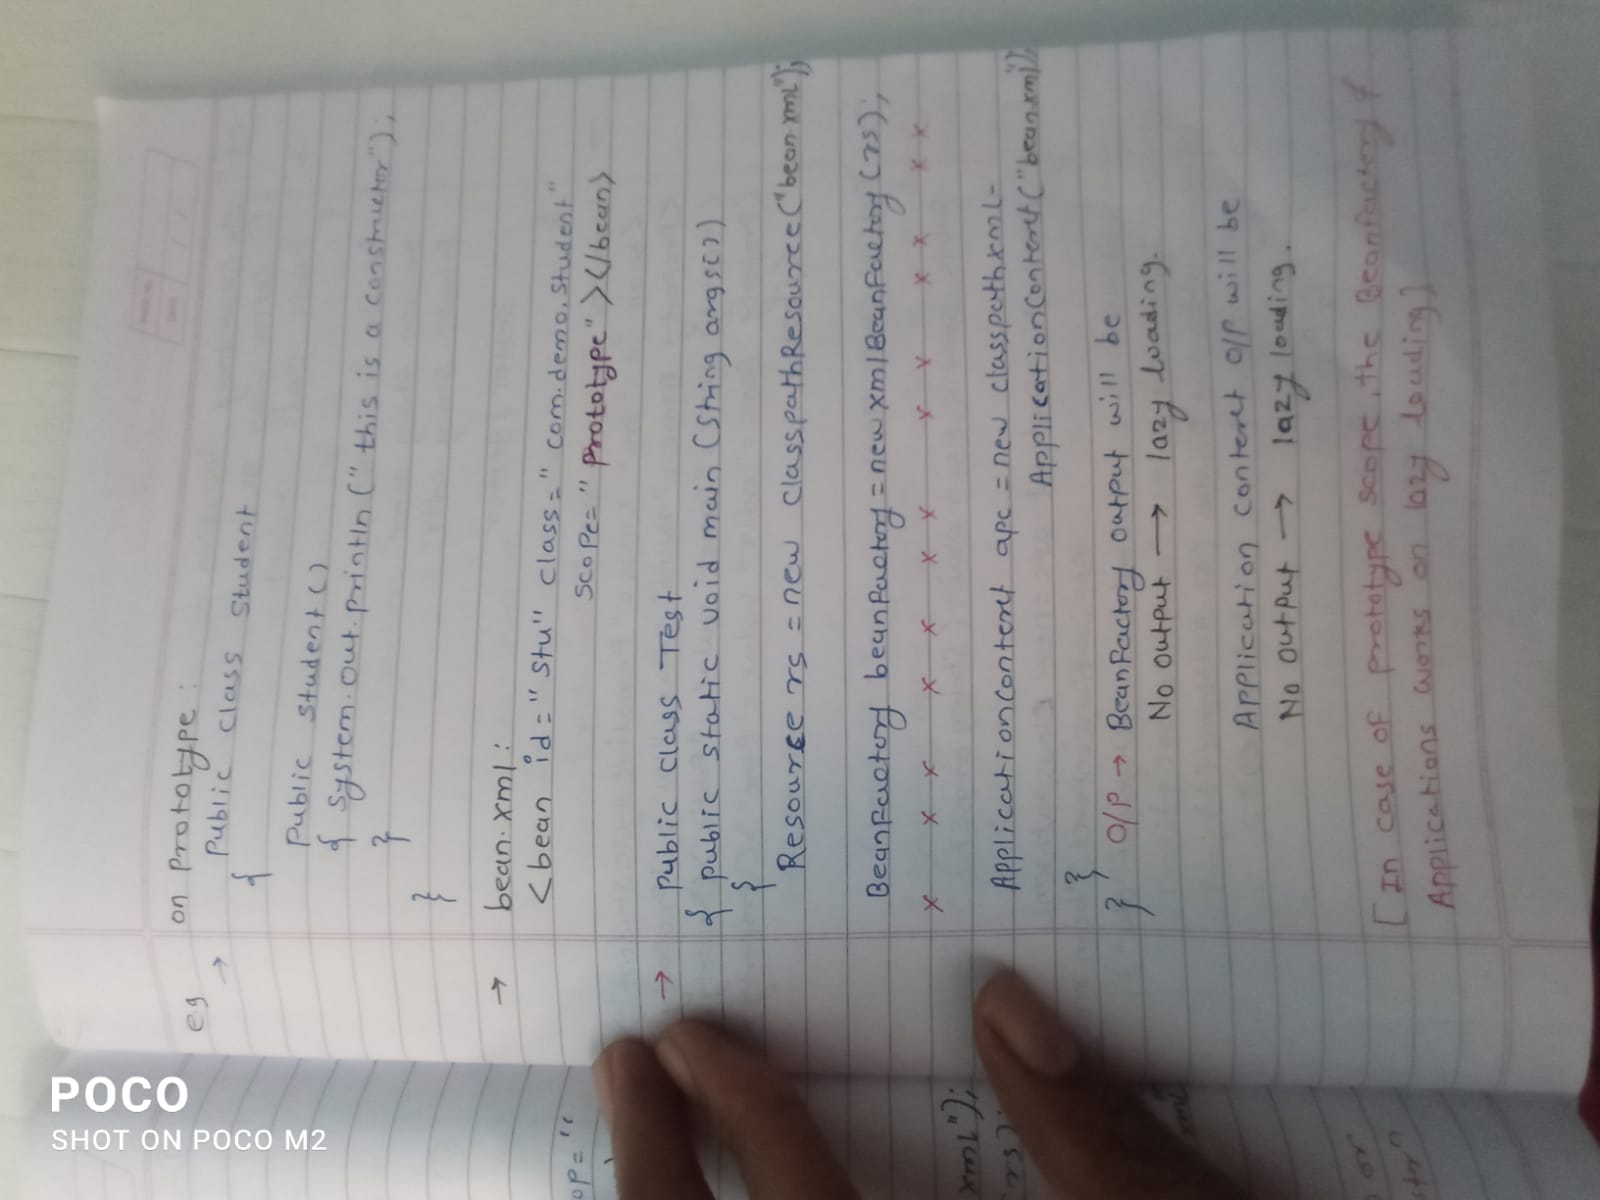 e.g on Prototype:
→ Public class Student
{
Public Student()
{ System.out.println("this is a constructor");
}
}
→ bean.xml:
<bean id="stu" class="com.demo.Student"
scope="Prototype"></bean>
→ Public class Test
{ public static void main (String args[])
{
Resource rs = new ClasspathResource("bean.xml");
BeanFactory beanFactory = new xmlBeanFactory(rs);
x x x x x x x x x x x x x
ApplicationContext apc = new classpathxml-
ApplicationContext("bean.xml");
}
} O/P → BeanFactory output will be
No output → lazy loading.
Application context O/P will be
No output → lazy loading.
[In case of prototype scope, the BeanFactory &
Applications works on lazy loading]
OP="
xml");
rs);
xml
or
POCO
SHOT ON POCO M2